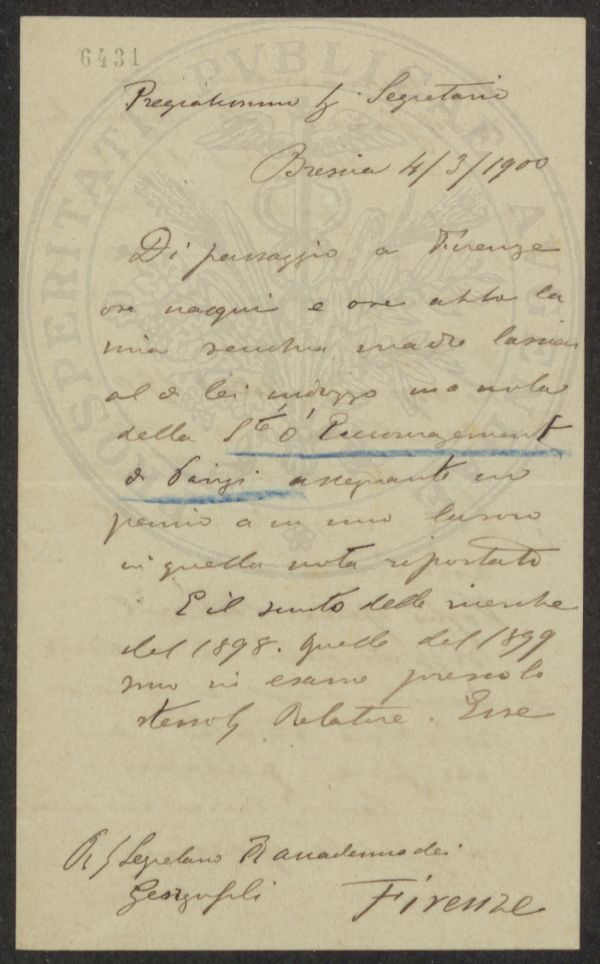 6431
PROSPERITATI PVBLICAE AVGENDAE
Pregiatissimo Sig Segretario
Brescia 4/3/1900
Di passaggio a Firenze
ove nacqui e ove abito la
mia vecchia madre lasciai
al di lei indirizzo una nota
della Sté d'Encouragement
di Parigi assegnante un
premio a un mio lavoro
in quella nota riportato
E il sunto delle ricerche
del 1898. Quelle del 1899
sono in esame presso lo
stesso Sig Relatore. Esse
Al Sig Segretario R Accademia dei
Georgofili
Firenze